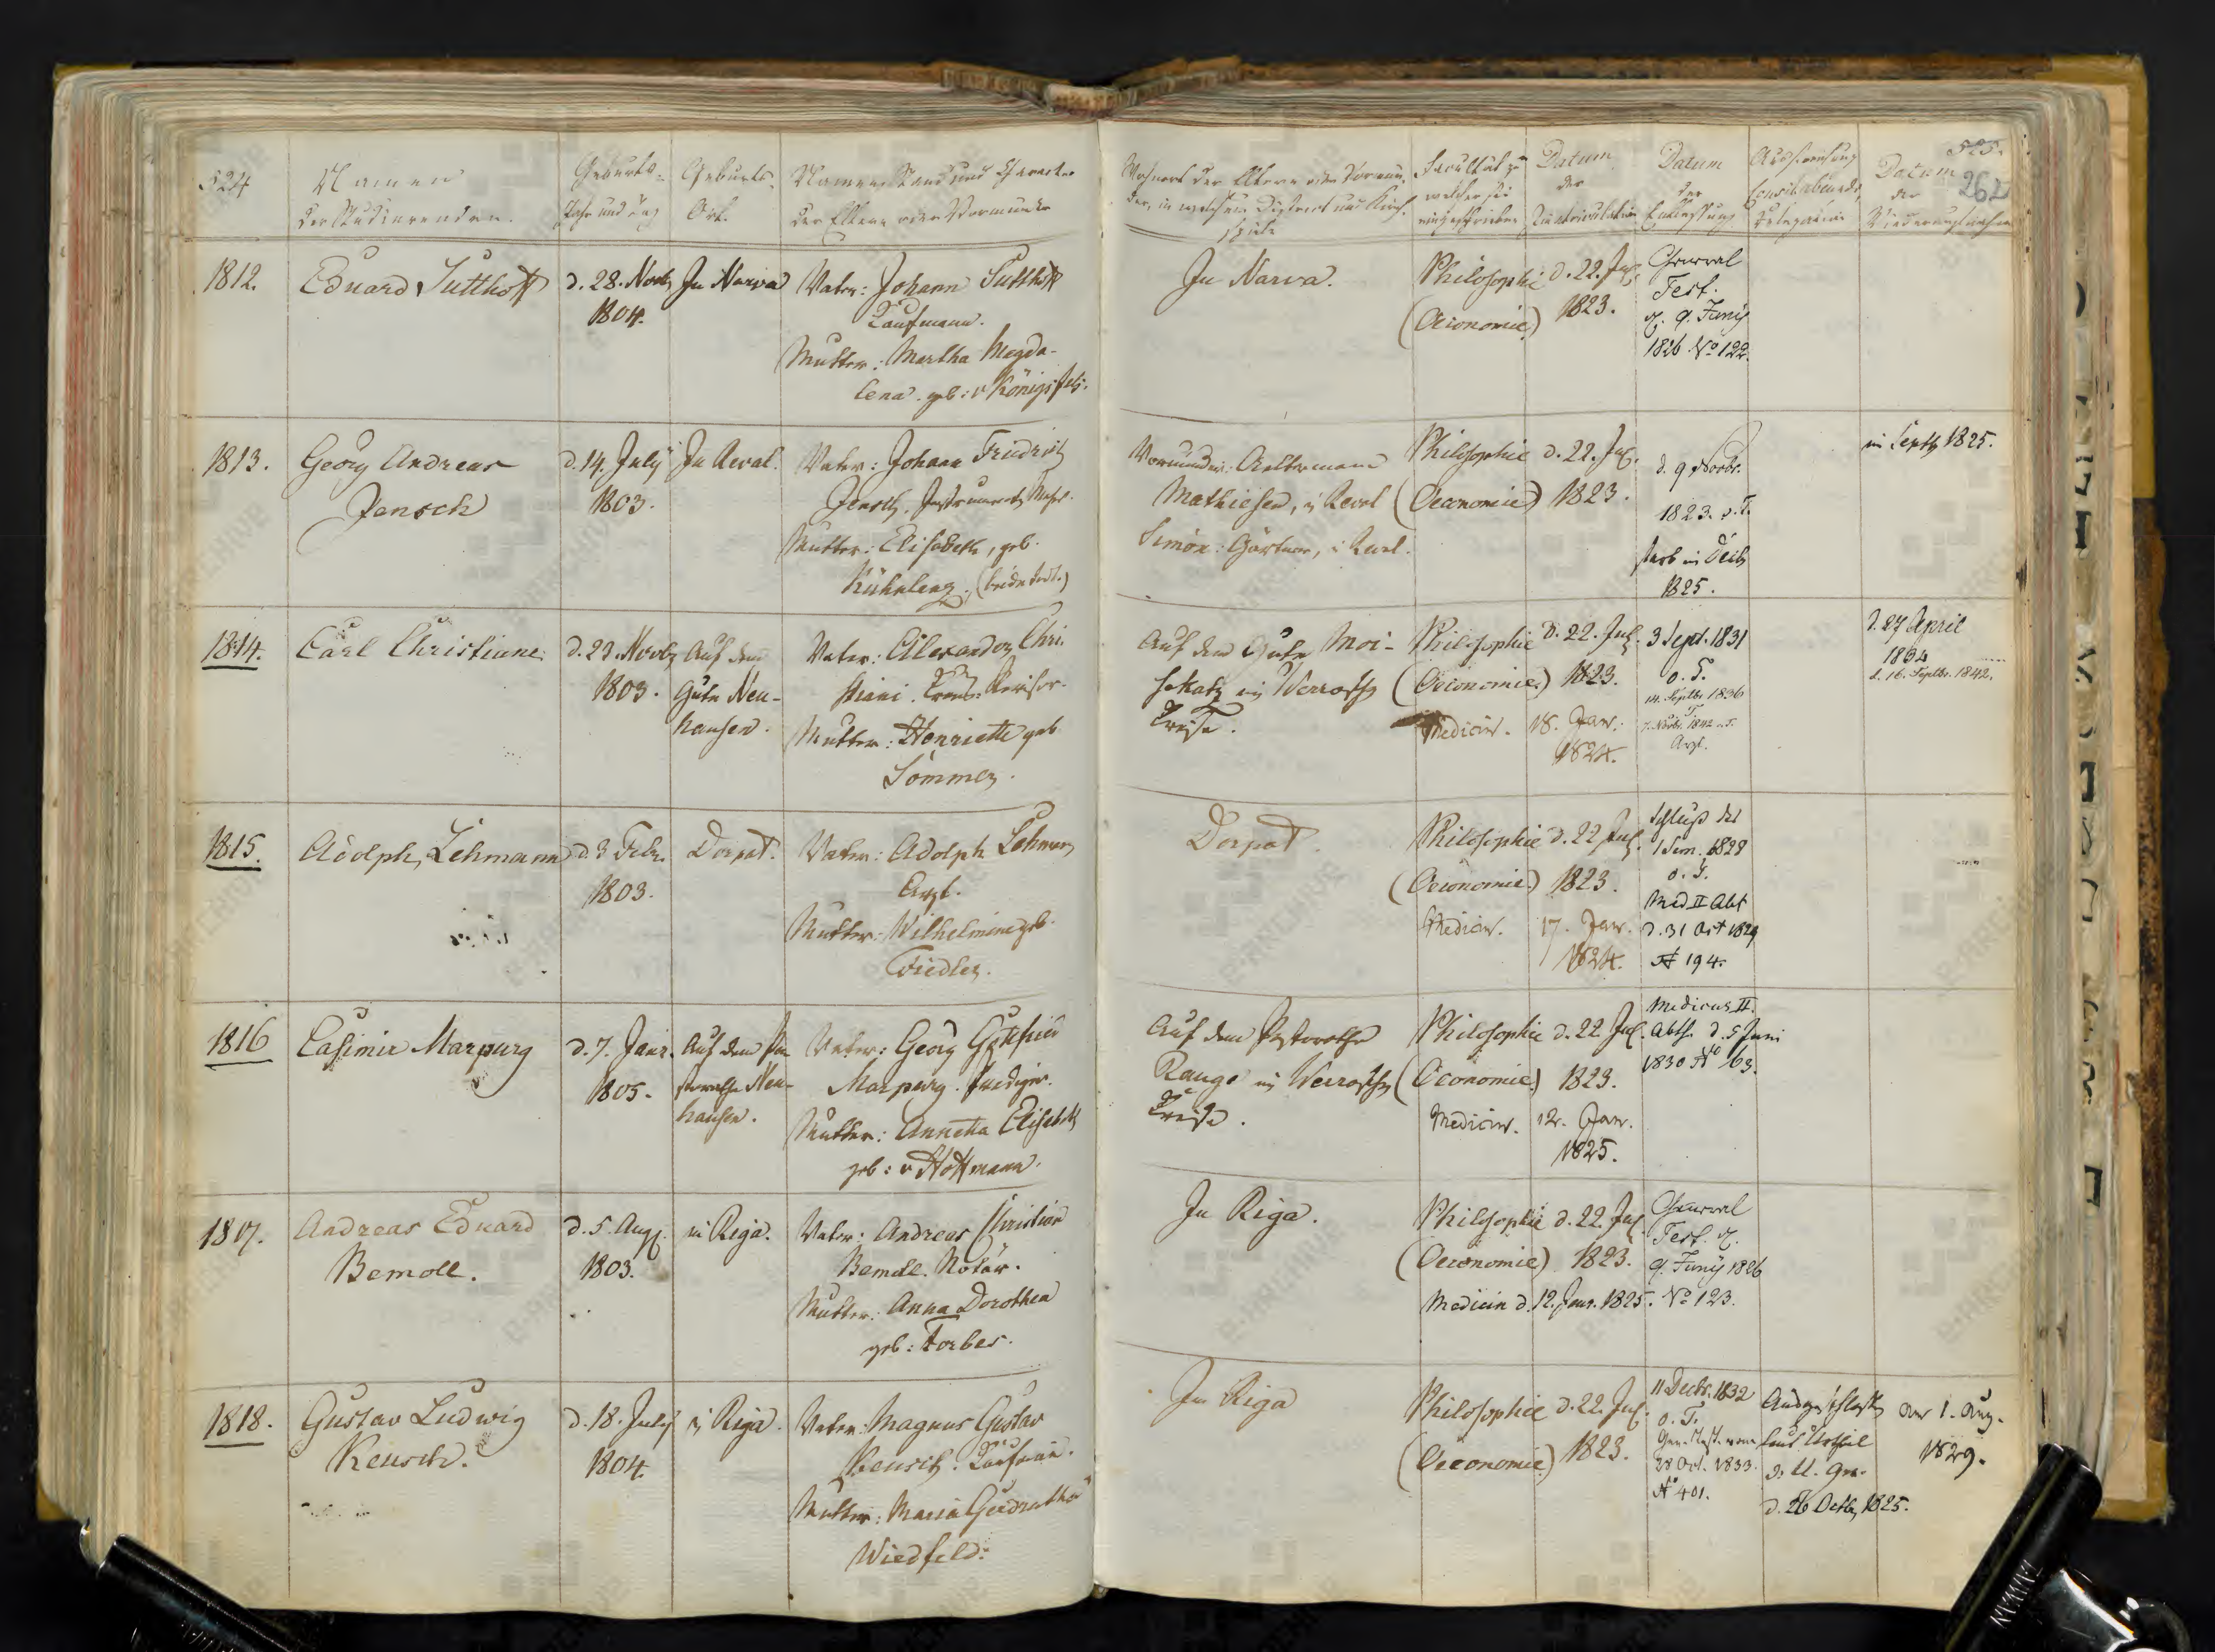 524
Namen
der Studierenden.
Geburts-
Jahr und Tag
Geburts-
Ort.
Namen, Stand und Character
der Eltern oder Vormunder
Wohnort der Eltern oder Vormün-
der, in welchem District und Kirch-
spiele
Facultät zu
welcher sie
eingeschrieben
Datum
der
Immatriculation
Datum
der
Entlassung
Datum
der
525.
262
1812.
Eduard Sutthoff
d. 28. Novbr
1804.
In Narva
Vater: Johann Sutthoff
Kaufmann.
Mutter: Martha Magda-
lena geb: v Königsfels.
In Narva.
Philosophie
(Oeconomie)
d. 22. Jul.
1823.
General
Test.
d. 9. Junÿ
1826 No 122.
1813.
Georg Andreas
Jensch
d. 14. July
1803.
In Reval.
Vater: Johann Friedrich
Jensch, Instrument. Mach.
Mutter: Elisabeth, geb.
(beide todt.)
Vormünder: Aeltermann
Mathiesen, in Reval
Simon: Gärtner, in Reval.
Philosophie
(Oeconomie)
d. 22. Jul.
1823.
d. 9 Novbr.
1823. o. T.
starb im Decbr
1825.
im Septbr 1825.
1814.
Carl Christiani
d. 23. Novbr
1803.
Auf dem
Gute Neu-
hausen.
Vater: Alexander Chri-
stiani. Kreis-Revisor.
Mutter: Henriette geb.
Sommer.
Auf dem Gute Moi-
sekatz im Werroschen
Kreise.
Philosophie
(Oeconomie)
Medicin.
d. 22. Jul.
1823.
18. Jan.
1824.
3 Sept. 1831
o. T.
14. Septbr. 1836
T.
7. Novbr. 1842 o. T.
Arzt.
d. 27 April
1834
d. 16. Septbr. 1842.
1815.
Adolph Lehmann
d. 3 Febr.
1803.
Dorpat.
Vater: Adolph Lehmann
Arzt.
Mutter: Wilhelmine geb.
Fiedler.
Dorpat
Philosophie
(Oeconomie)
Medicin.
d. 22 Jul.
1823.
17. Jan.
1824.
Schluß des
1 Sem. 1828
o. T.
Med II Abt
d. 31 Oct 1829
No 194.
1816
Casimir Marpurg
d. 7. Janr.
1805.
Auf dem Pa-
storathe Neu-
hausen.
Vater: Georg Gottfried
Marpurg. Prediger.
Mutter: Annetta Elisabeth
geb: v Hoffmann.
Auf dem Pastorathe
Rauge im Werroschen
Kreise.
Philosophie
(Oeconomie)
Medicin.
d. 22. Jul.
1823.
12. Jan.
1825.
Medicus II.
Abth. d. 5 Juni
1830 No 63.
1817.
Andreas Eduard
Bemoll.
d. 5. Aug.
1803.
in Riga.
Vater: Andreas Christian
Bemoll. Notär.
Mutter: Anna Dorothea
geb: Forbes.
In Riga.
Philosophie
(Oeconomie)
Medicin d. 12. Janr. 1825.
d. 22. Jul.
1823.
General
Test. d.
9. Junÿ 1826
No 123.
1818.
Gustav Ludwig
Reusch.
d. 18. July
1804.
in Riga.
Vater: Magnus Gustav
Reusch. Kaufmann.
Mutter: Maria Gerdrutha
Wiedfeld.
In Riga
Philosophie
(Oeconomie)
d. 22. Jul.
1823.
11 Decbr. 1832
o. T.
Gen. Test. vom
28 Oct. 1833.
No 401.
Ausgeschlossen
laut Urtheil
d. U. Ger.
d. 26 Octbr 1825.
den 1. Aug.
1829.